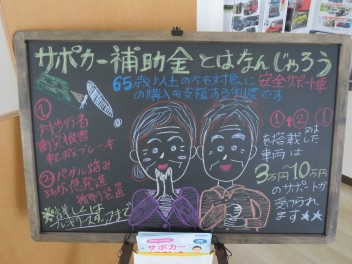 サポカー補助金とはなんじゃろう
65歳以上の方を対象に安全サポート車
の購入を支援する制度です
①
対歩行者
衝突被害
軽減ブレーキ
②ペダル踏み
間違い急発進
抑制装置
※詳しくは
スタッフまで
①+②
を搭載した
車両は
3万円10万円
のサポートが
受けられ
ます★★
サポカー